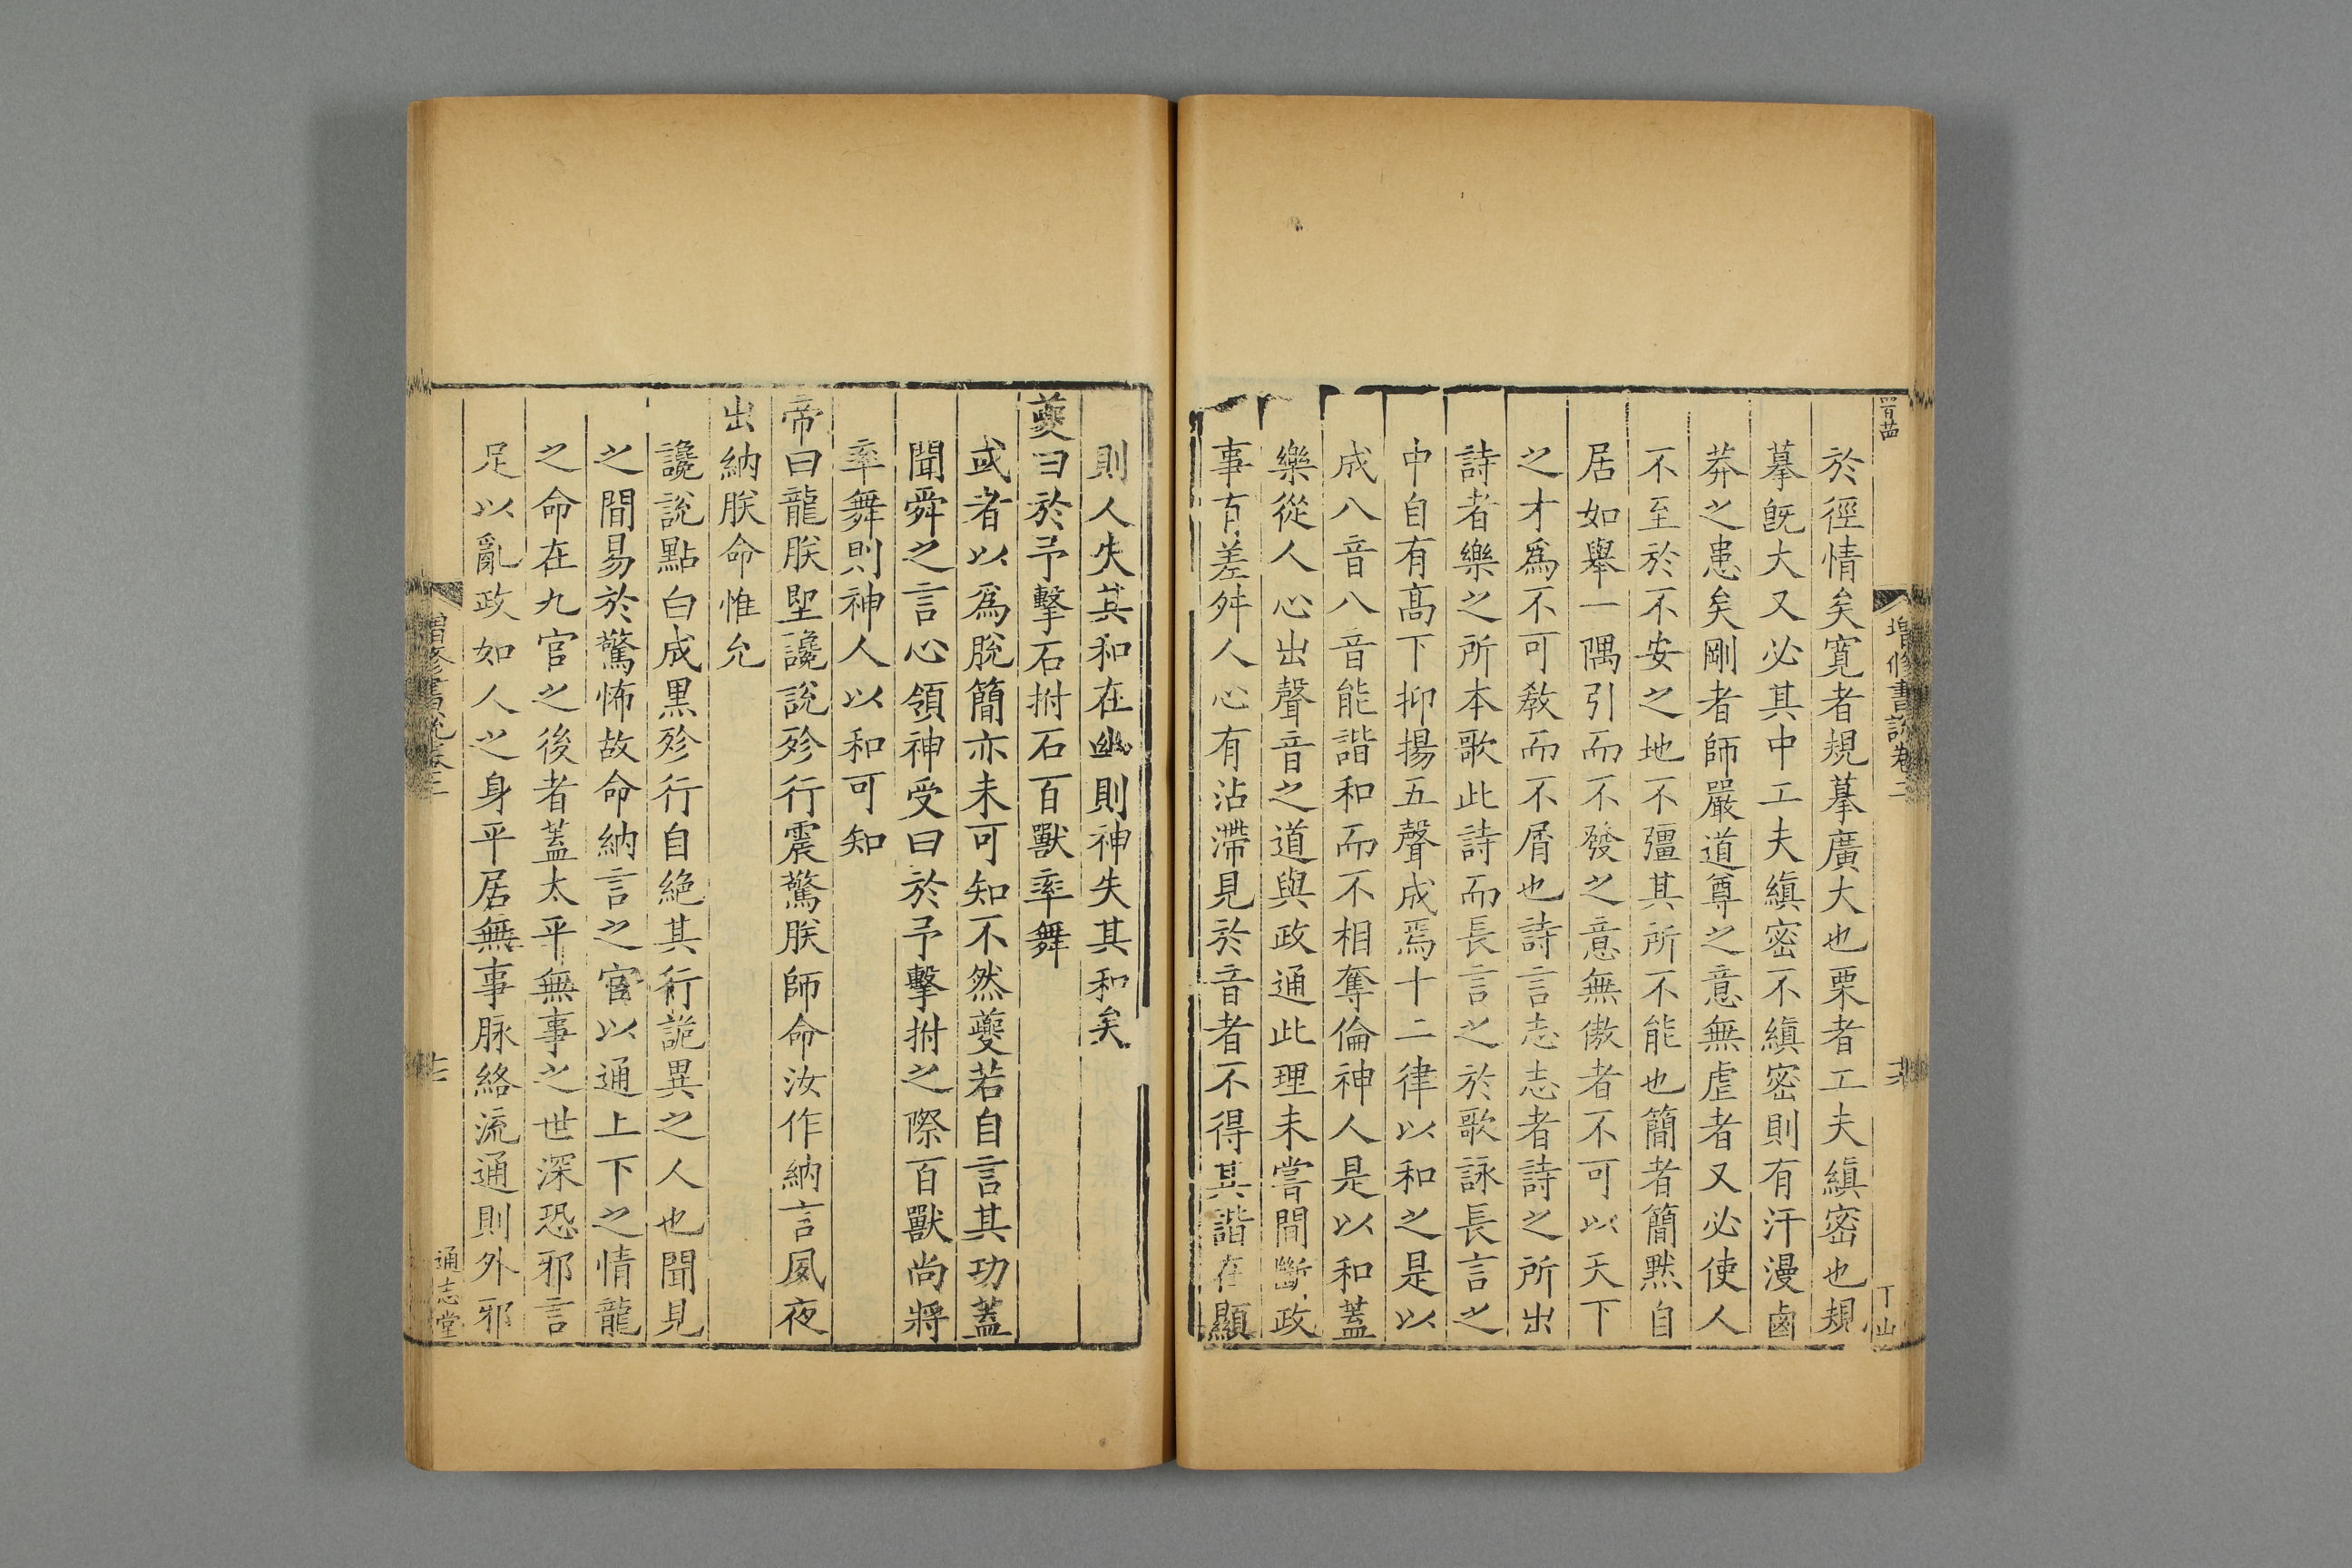 增修書說卷二
於徑情矣寛者規摹廣大也栗者工夫縝密也規
摹旣大又必其中工夫縝密不縝密則有汗漫鹵
莽之患矣剛者師嚴道尊之意無虐者又必使人
不至於不安之地不彊其所不能也簡者簡黙自
居如舉一隅引而不發之意無傲者不可以天下
之才爲不可敎而不屑也詩言志志者詩之所出
詩者樂之所本歌此詩而長言之於歌詠長言之
中自有髙下抑揚五聲成焉十二律以和之是以
成八音八音能諧和而不相奪倫神人是以和蓋
樂從人心出聲音之道與政通此理未嘗間斷政
事有差舛人心有沾滯見於音者不得其諧在顯
則人失其和在幽則神失其和矣
夔曰於予擊石拊石百獸率舞
或者以爲脫簡亦未可知不然夔若自言其功蓋
聞舜之言心領神受曰於予擊拊之際百獸尚將
率舞則神人以和可知
帝曰龍朕堲讒說殄行震驚朕師命汝作納言夙夜
出納朕命惟允
讒說點白成黑殄行自絶其行詭異之人也聞見
之間易於驚怖故命納言之官以通上下之情龍
之命在九官之後者蓋太平無事之世深恐邪言
足以亂政如人之身平居無事脉絡流通則外邪
增修書說卷二
通志堂